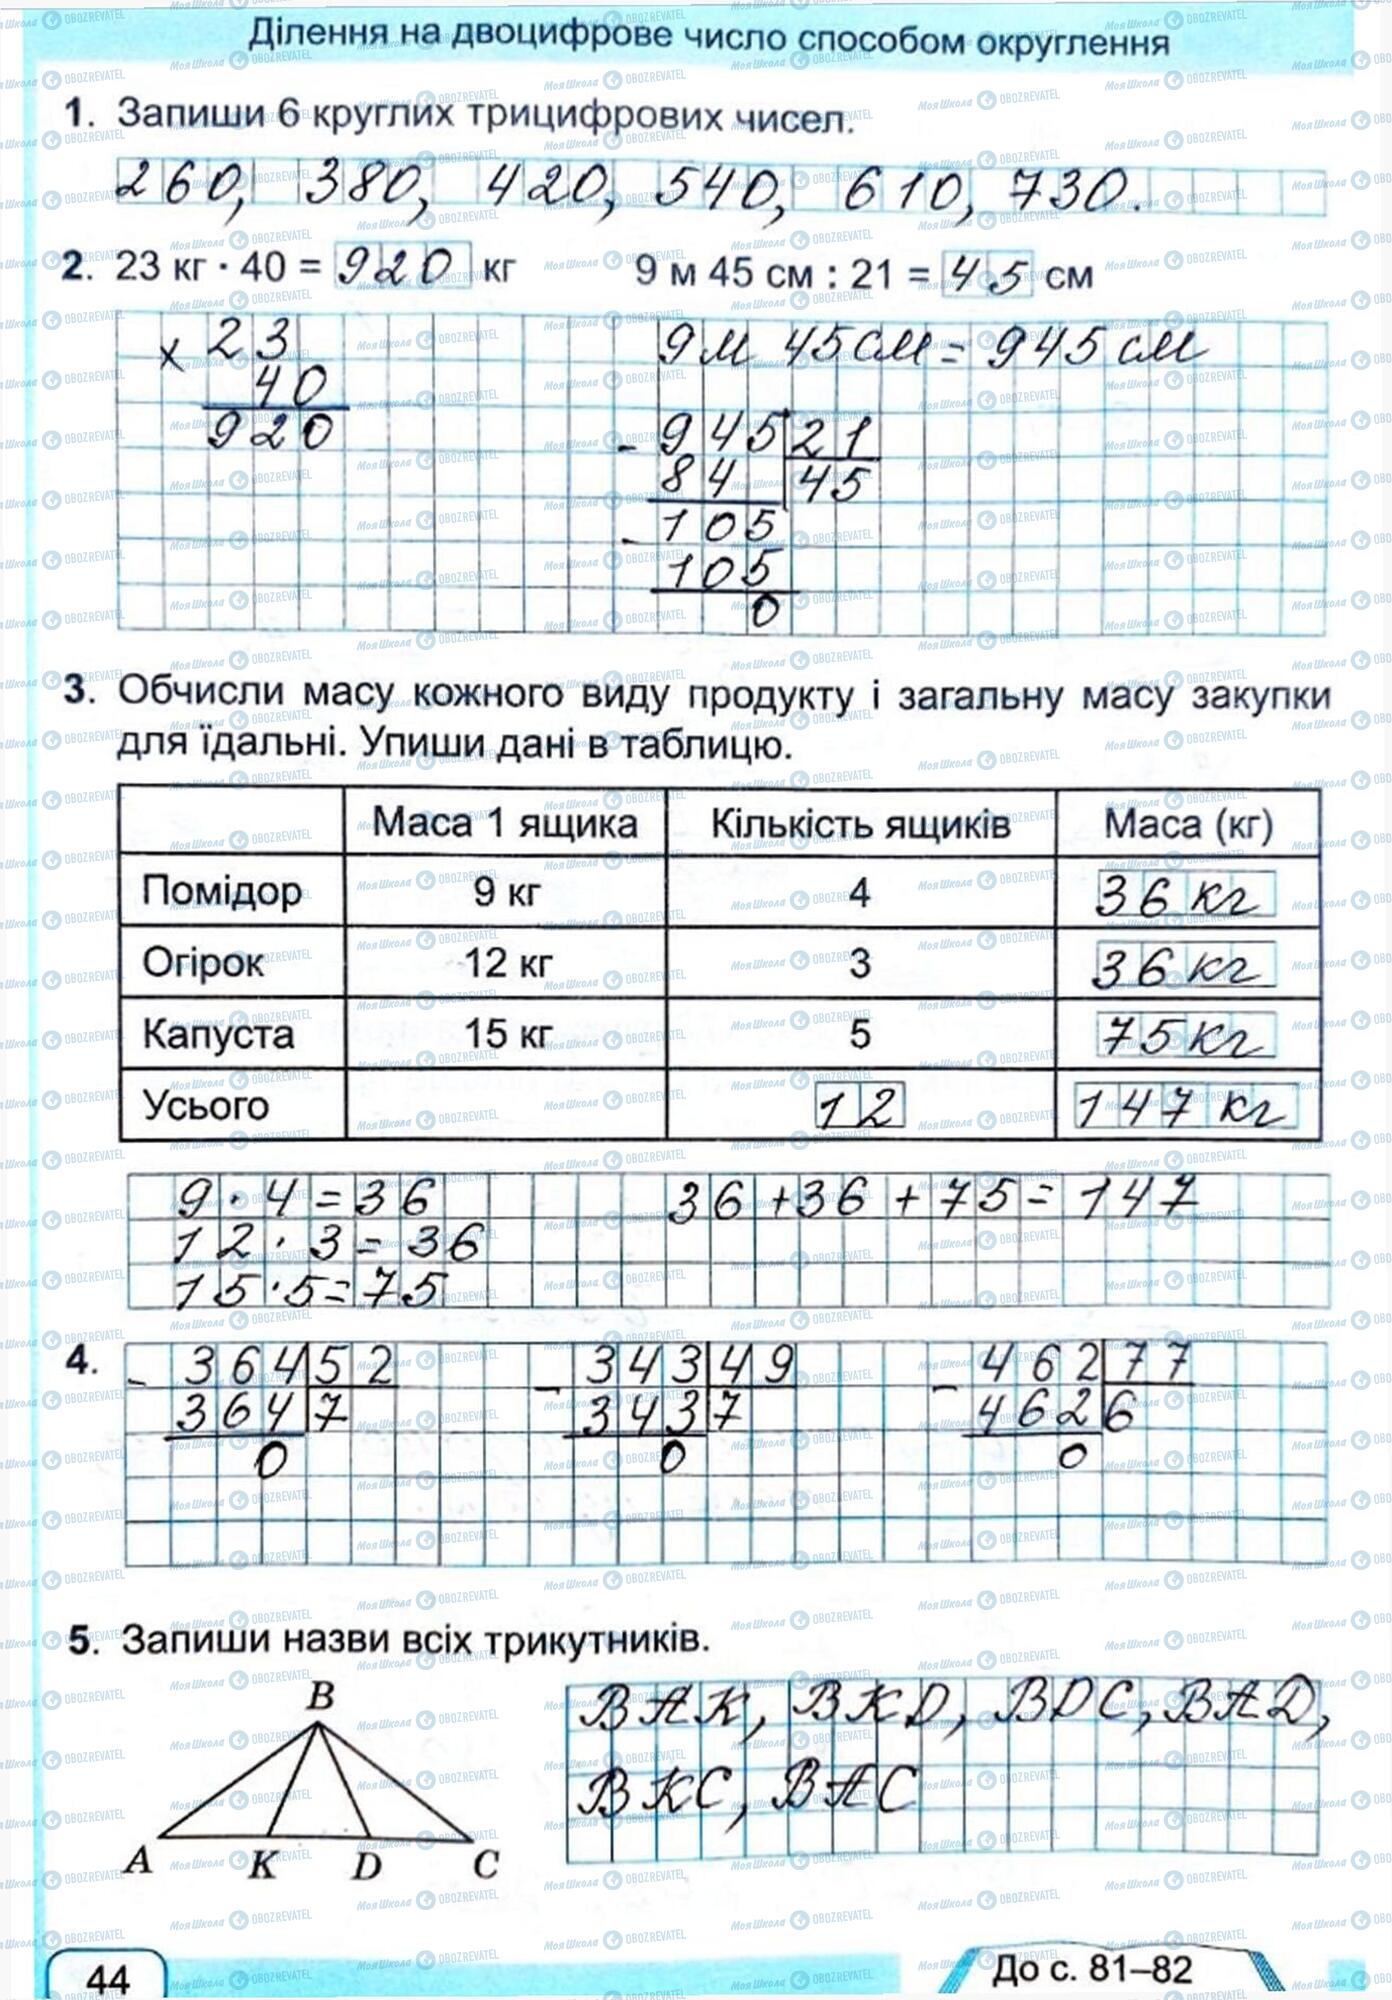 Ділення на двоцифрове число способом округлення
1. Запиши 6 круглих трицифрових чисел.
260, 380, 420, 540, 610, 730.
2. 23 кг · 40 = 920 кг 9 м 45 см : 21 = 45 см
× 23
40
920
9м 45см = 945 см
- 945 21
84 45
- 105
105
0
3. Обчисли масу кожного виду продукту і загальну масу закупки
для їдальні. Упиши дані в таблицю.
Маса 1 ящика Кількість ящиків Маса (кг)
Помідор 9 кг 4 36 кг
Огірок 12 кг 3 36 кг
Капуста 15 кг 5 75 кг
Усього 12 147 кг
9 · 4 = 36 36 + 36 + 75 = 147
12 · 3 = 36
15 · 5 = 75
4. - 364 52 - 343 49 - 462 77
364 7 343 7 462 6
0 0 0
5. Запиши назви всіх трикутників.
B
A K D C
ВАК, ВКD, ВDС, ВАD,
ВКС, ВАС
44
До с. 81–82
МояШкола OBOZREVATEL